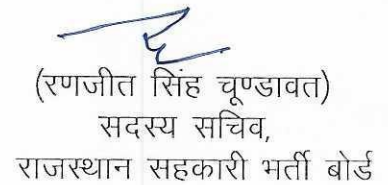 (रणजीत सिंह चूण्डावत)
सदस्य सचिव,
राजस्थान सहकारी भर्ती बोर्ड